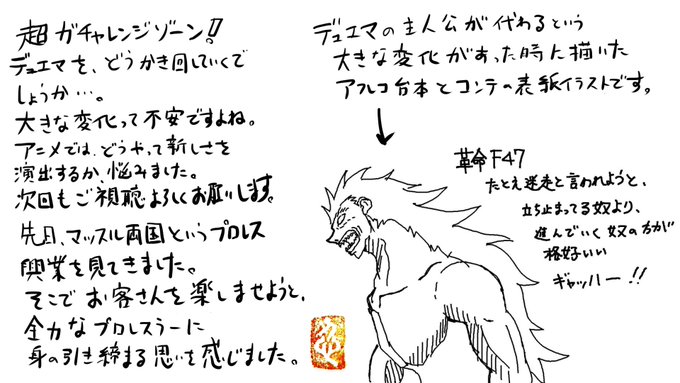 超ガチャレンジゾーン!
デュエマを、どうかき回していくで
しょうか…。
大きな変化って不安ですよね。
アニメでは、どうやって新しさを
演出するか、悩みました。
次回もご視聴よろしくお願いします。
先日、マッスル両国というプロレス
興業を見てきました。
そこでお客さんを楽しませようと、
全力なプロレスラーに
身の引き締まる思いを感じました。
デュエマの主人公が代わるという
大きな変化があった時に描いた
アフレコ台本とコンテの表紙イラストです。
革命F47
たとえ迷走と言われようと、
立ち止まってる奴より、
進んでいく奴の方が
格好いい
ギャッハー!!